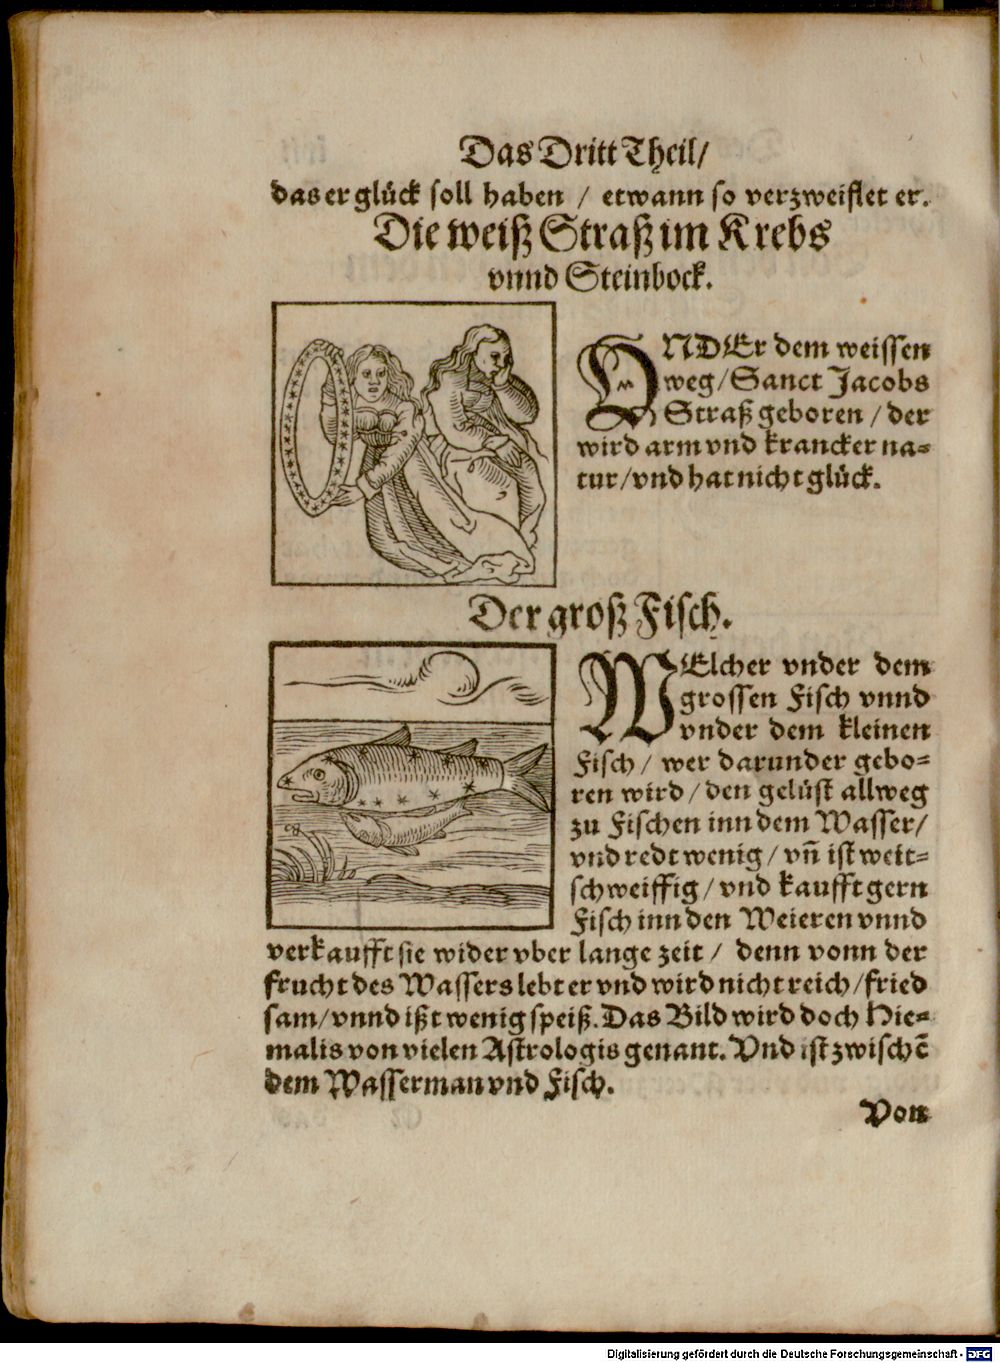 Das Dritt Theil/
das er glück soll haben / etwann so verzweiflet er.
Die weiß Straß im Krebs
vnnd Steinbock.
VNDEr dem weissen
weg/Sanct Jacobs
Straß geboren / der
wird arm vnd krancker na⸗
tur/vnd hat nicht glück.
Der groß Fisch.
WElcher vnder dem
grossen Fisch vnnd
vnder dem kleinen
Fisch / wer darunder gebo⸗
ren wird / den gelüst allweg
zu Fischen inn dem Wasser/
vnd redt wenig / vñ ist weit⸗
schweiffig / vnd kaufft gern
Fisch inn den Weieren vnnd
verkaufft sie wider vber lange zeit / denn vonn der
frucht des Wassers lebt er vnd wird nicht reich /fried
sam/vnnd ißt wenig speiß. Das Bild wird doch Hie⸗
malis von vielen Astrologis genant. Vnd ist zwischē
dem Wasserman vnd Fisch.
Von
Digitalisierung gefördert durch die Deutsche Forschungsgemeinschaft - DFG